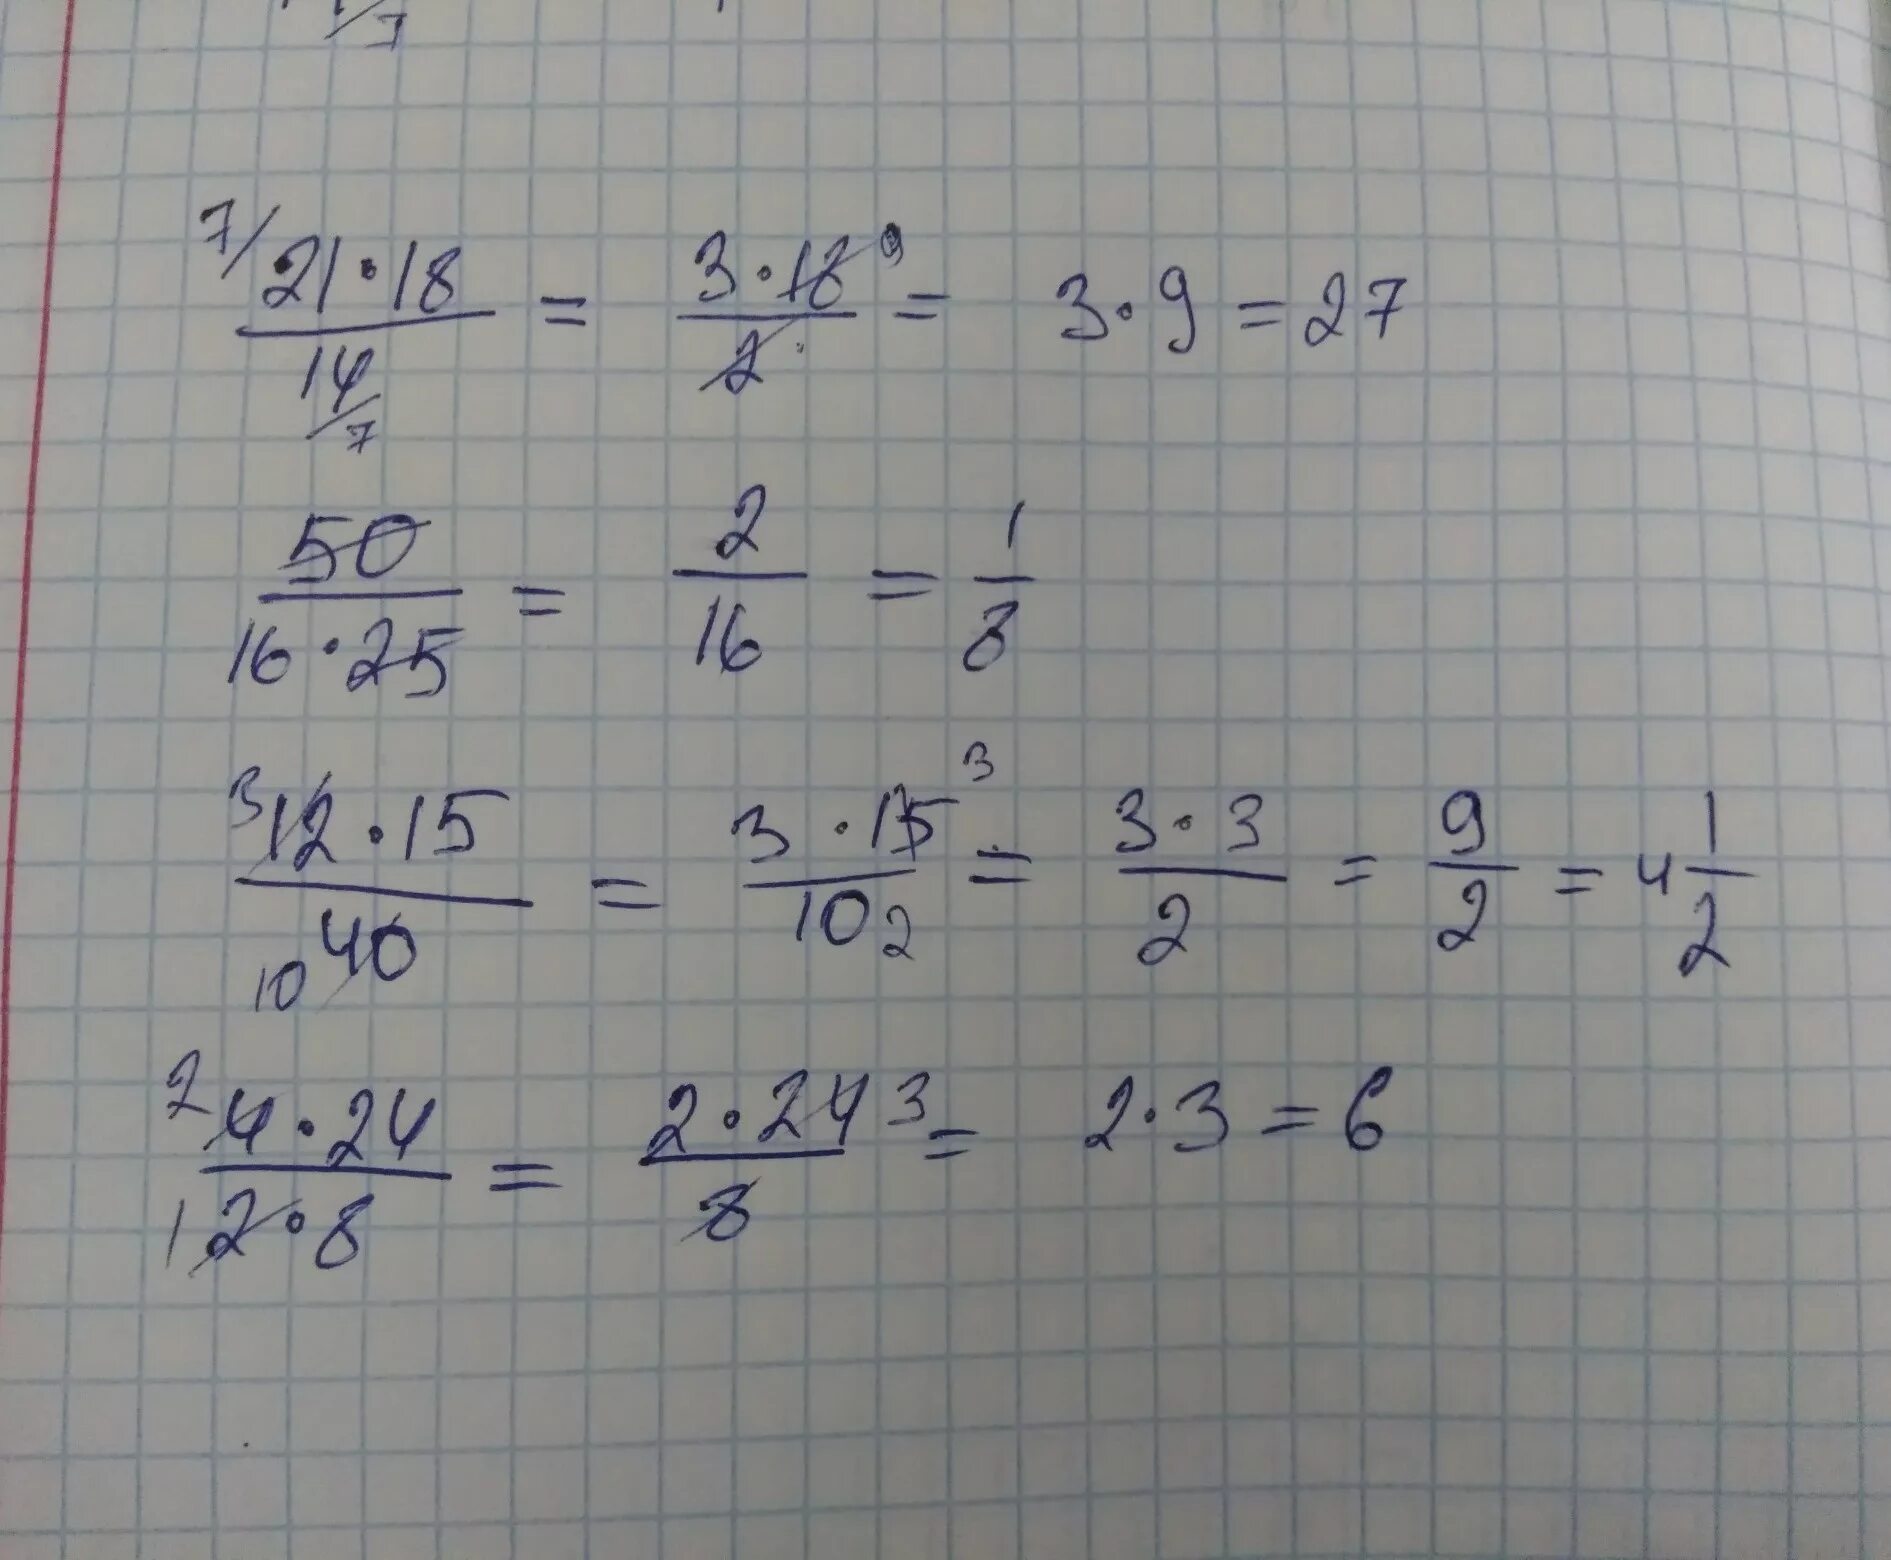 7/ 21·18 / 14 /7 = 3·18 9 / 2 = 3·9 = 27
50 / 16·25 = 2 / 16 = 1 / 8
3 12·15 / 10 40 = 3·15 3 / 10 2 = 3·3 / 2 = 9 / 2 = 4 1/2
2 4·24 / 1 2·8 = 2·24 3 / 8 = 2·3 = 6